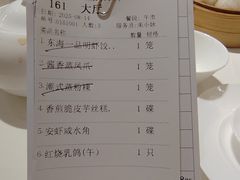 161 大厅
日期:2025-08-14 餐段:午市
帐号:0181901 人数:5 服务员:王小妹
菜品名称
1 东海一品明虾饺.. 1 笼
2 酱香蒸凤爪 1 笼
3 潮式蒸粉粿 1 笼
4 香煎脆皮芋丝糕. 1 碟
5 安虾咸水角 1 碟
6 红烧乳鸽(午) 1 只